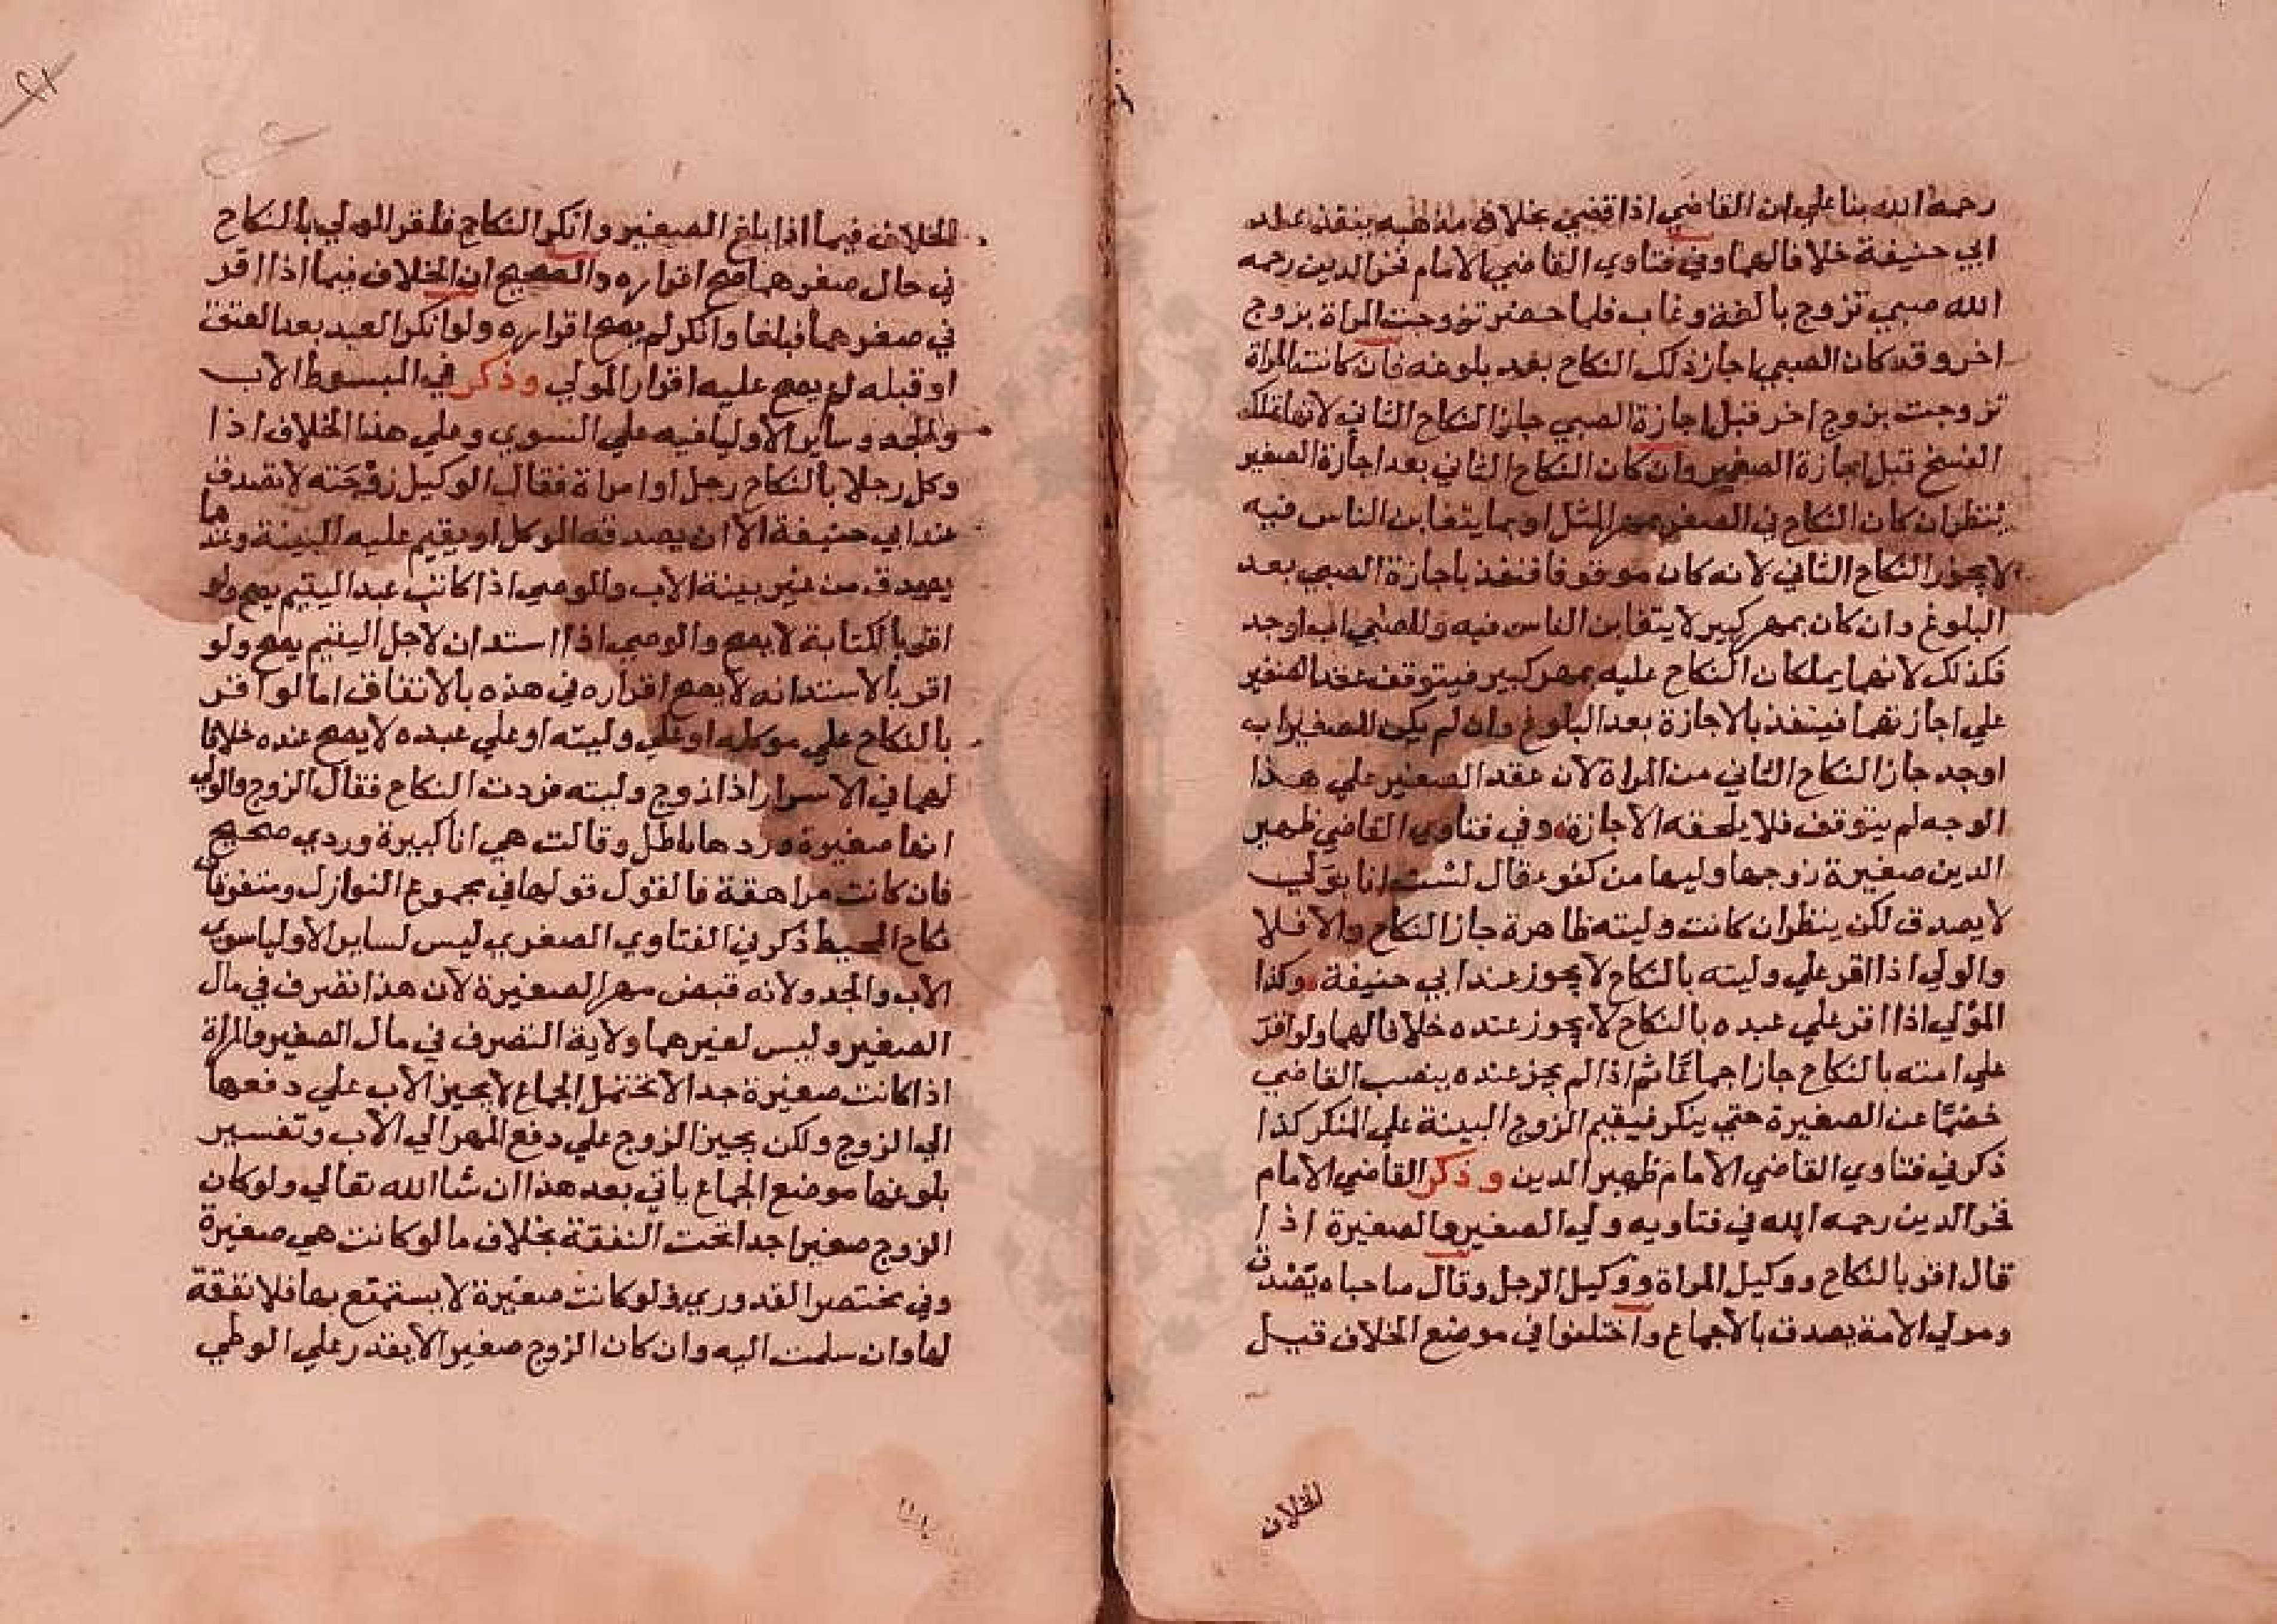 رحمه الله بنا علي ان القاضي اذا قضي بخلاف مذهبه ينفذ عند
ابي حنيفة خلافا لهما وفي فتاوي القاضي الامام فخر الدين رحمه
الله صبي تزوج بالغة وغاب فلما حضر تزوجت المراة بزوج
اخر وقد كان الصبي اجاز ذلك النكاح بعد بلوغه فان كانت المراة
تزوجت بزوج اخر قبل اجازة الصبي جاز النكاح الثاني لانها تملك
الفسخ قبل اجازة الصغير وان كان النكاح الثاني بعد اجازة الصغير
ينظر ان كان النكاح في الصغر بمهر المثل او بما يتغابن الناس فيه
لا يجوز النكاح الثاني لانه كان موقوفا فنفذ باجازة الصبي بعد
البلوغ وان كان بمهر كبير لا يتغابن الناس فيه وللصبي اب او جد
فكذلك لانهما يملكان النكاح عليه بمهر كبير فيتوقف عقد الصغير
علي اجازتهما فينفذ بالاجازة بعد البلوغ وان لم يكن للصغير اب
او جد جاز النكاح الثاني من المراة لان عقد الصغير علي هذا
الوجه لم يتوقف فلا يلحقه الاجازة وفي فتاوي القاضي ظهير
الدين صغيرة زوجها وليها من كفو وقال لست انا بولي
لا يصدق لكن ينظر ان كانت وليته ظاهرة جاز النكاح والا فلا
والولي اذا اقر علي وليته بالنكاح لا يجوز عند ابي حنيفة وكذا
المولي اذا اقر علي عبده بالنكاح لا يجوز عنده خلافا لهما ولو اقر
علي امته بالنكاح جاز اجماعا ثم اذا لم يجز عنده ينصب القاضي
خصما عن الصغيرة حتي ينكر فيقيم الزوج البينة علي المنكر كذا
ذكر في فتاوي القاضي الامام ظهير الدين وذكر القاضي الامام
فخر الدين رحمه الله في فتاويه ولي الصغير والصغيرة اذا
قال اقر بالنكاح ووكيل المراة ووكيل الرجل وقال صاحباه يصدق
ومولي الامة يصدق بالاجماع واختلفوا في موضع الخلاف قيل
الخلاف
الخلاف فيما اذا بلغ الصغير وانكر النكاح فاقر الولي بالنكاح
في حال صغرهما صح اقراره والصحيح ان الخلاف فيما اذا اقر
في صغرهما فبلغا وانكر لم يصح اقراره ولو انكر العبد بعد العتق
او قبله لم يصح عليه اقرار المولي وذكر في المبسوط الاب
والجد وساير الاوليا فيه علي السوي وعلي هذا الخلاف اذا
وكل رجلا بالنكاح رجل او امراة فقال الوكيل زوجته لا تصدق
عند ابي حنيفة الا ان يصدقه الموكل او يقيم عليه البينة وعندهما
يصدق من غير بينة الاب والوصي اذا كاتب عبد اليتيم يصح ولو
اقر بالكتابة لا يصح والوصي اذا استدان لاجل اليتيم يصح ولو
اقر بالاستدانه لا يصح اقراره في هذه بالاتفاق اما لو اقر
بالنكاح علي موكله او علي وليته او علي عبده لا يصح عنده خلافا
لهما في الاسرار اذا زوج وليته فردت النكاح فقال الزوج والولي
انها صغيرة وردها باطل وقالت هي انا كبيرة وردي صحيح
فان كانت مراهقة فالقول قولها في مجموع النوازل ومتفرقات
نكاح المحيط ذكر في الفتاوي الصغري ليس لساير الاوليا سوي
الاب والجد ولاية قبض مهر الصغيرة لان هذا تصرف في مال
الصغير وليس لغيرهما ولاية التصرف في مال الصغير والمراة
اذا كانت صغيرة جدا لا تحتمل الجماع لا يجبر الاب علي دفعها
الي الزوج ولكن يجبر الزوج علي دفع المهر الي الاب وتفسير
بلوغها موضع الجماع ياتي بعد هذا ان شا الله تعالي ولو كان
الزوج صغيرا جدا تجب النفقة بخلاف ما لو كانت هي صغيرة
وفي مختصر القدوري ولو كانت صغيرة لا يستمتع بها فلا نفقة
لها وان سلمت اليه وان كان الزوج صغيرا لا يقدر علي الوطي